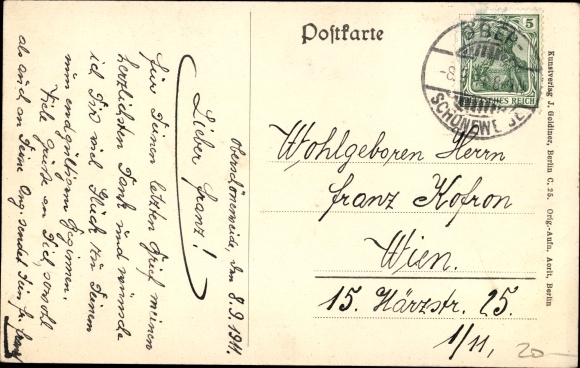 Postkarte
5
OBER-
SCHÖNEWEIDE
DEUTSCHES REICH
Wohlgeboren Herrn
Franz Kofron
Wien.
15. Härzstr. 25.
1/11,
20-
Kunstverlag J. Goldiner, Berlin C. 25. Orig.-Aufn. Aorit, Berlin
Oberschöneweide, den 8.9.1911.
Lieber Franz!
Für Deinen letzten Brief meinen
herzlichsten Dank und wünsche
ich Dir viel Glück zu Deinem
nun endgültigem Beginnen.
Viele Grüße an Dich, sowohl
als auch an Deine Ang. sendet Dein Fr. Franz